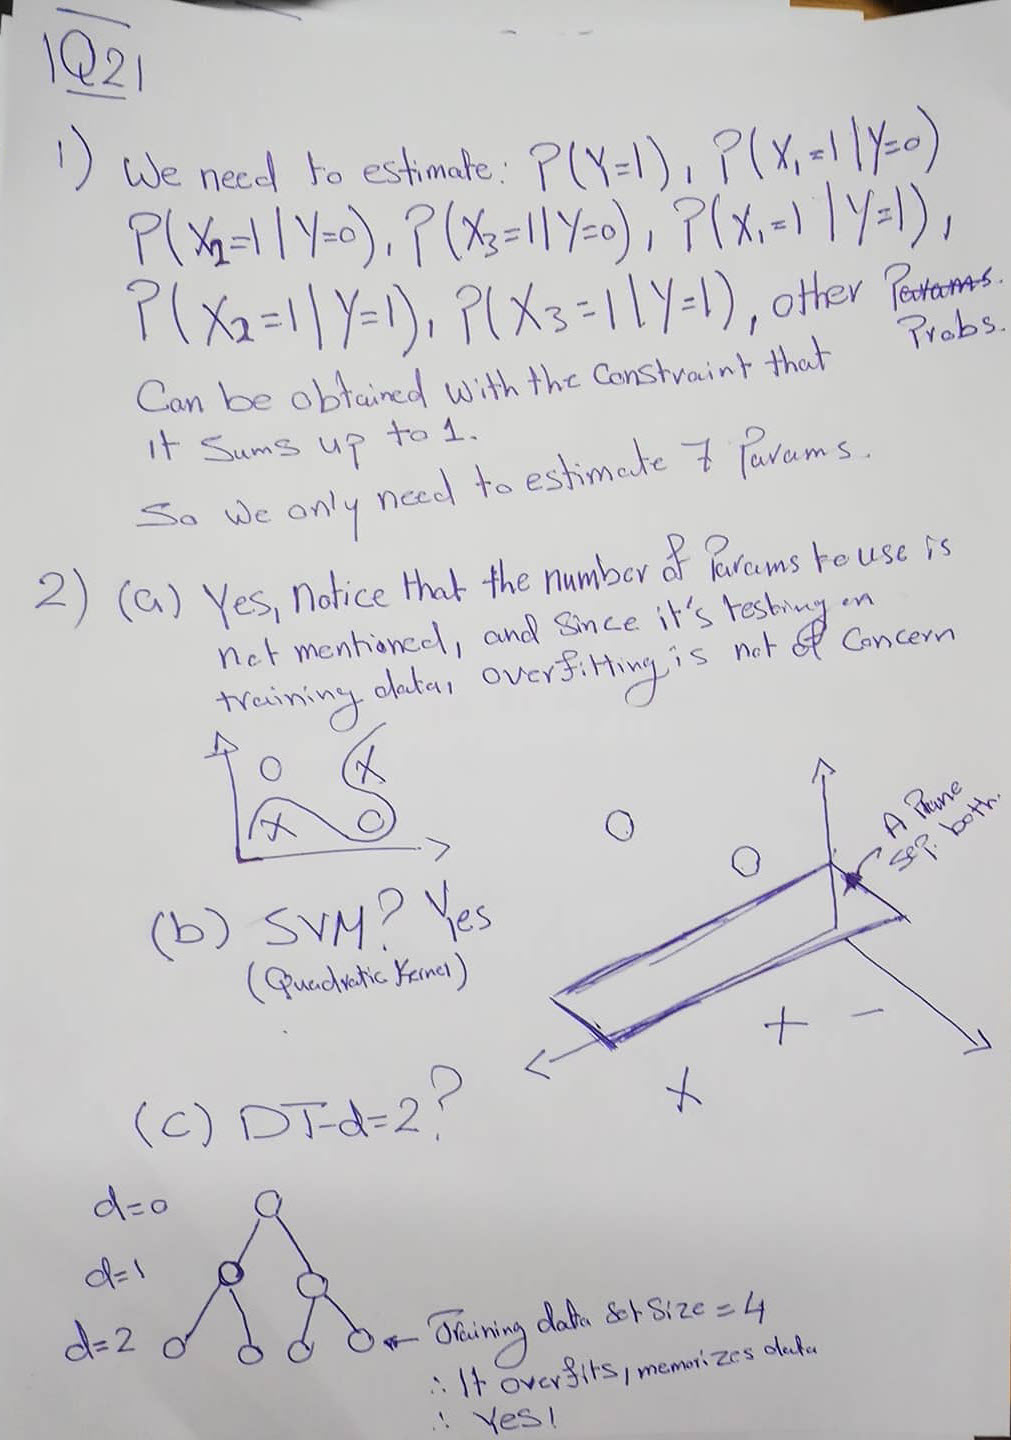 Q2
1) We need to estimate: P(Y=1), P(X₁=1|Y=0)
P(X₂=1|Y=0), P(X₃=1|Y=0), P(X₁=1|Y=1),
P(X₂=1|Y=1), P(X₃=1|Y=1), other Params.
Probs.
Can be obtained with the constraint that
it sums up to 1.
So we only need to estimate 7 Params.
2) (a) Yes, notice that the number of Params to use is
not mentioned, and since it's testing on
training data, overfitting is not of concern
O X
X O
O
O
A Plane
sep. both.
(b) SVM? Yes
(Quadratic Kernel)
+ −
X
(c) DT-d=2?
d=0
d=1
d=2
Training data set size = 4
∴ It overfits, memorizes data
∴ Yes!